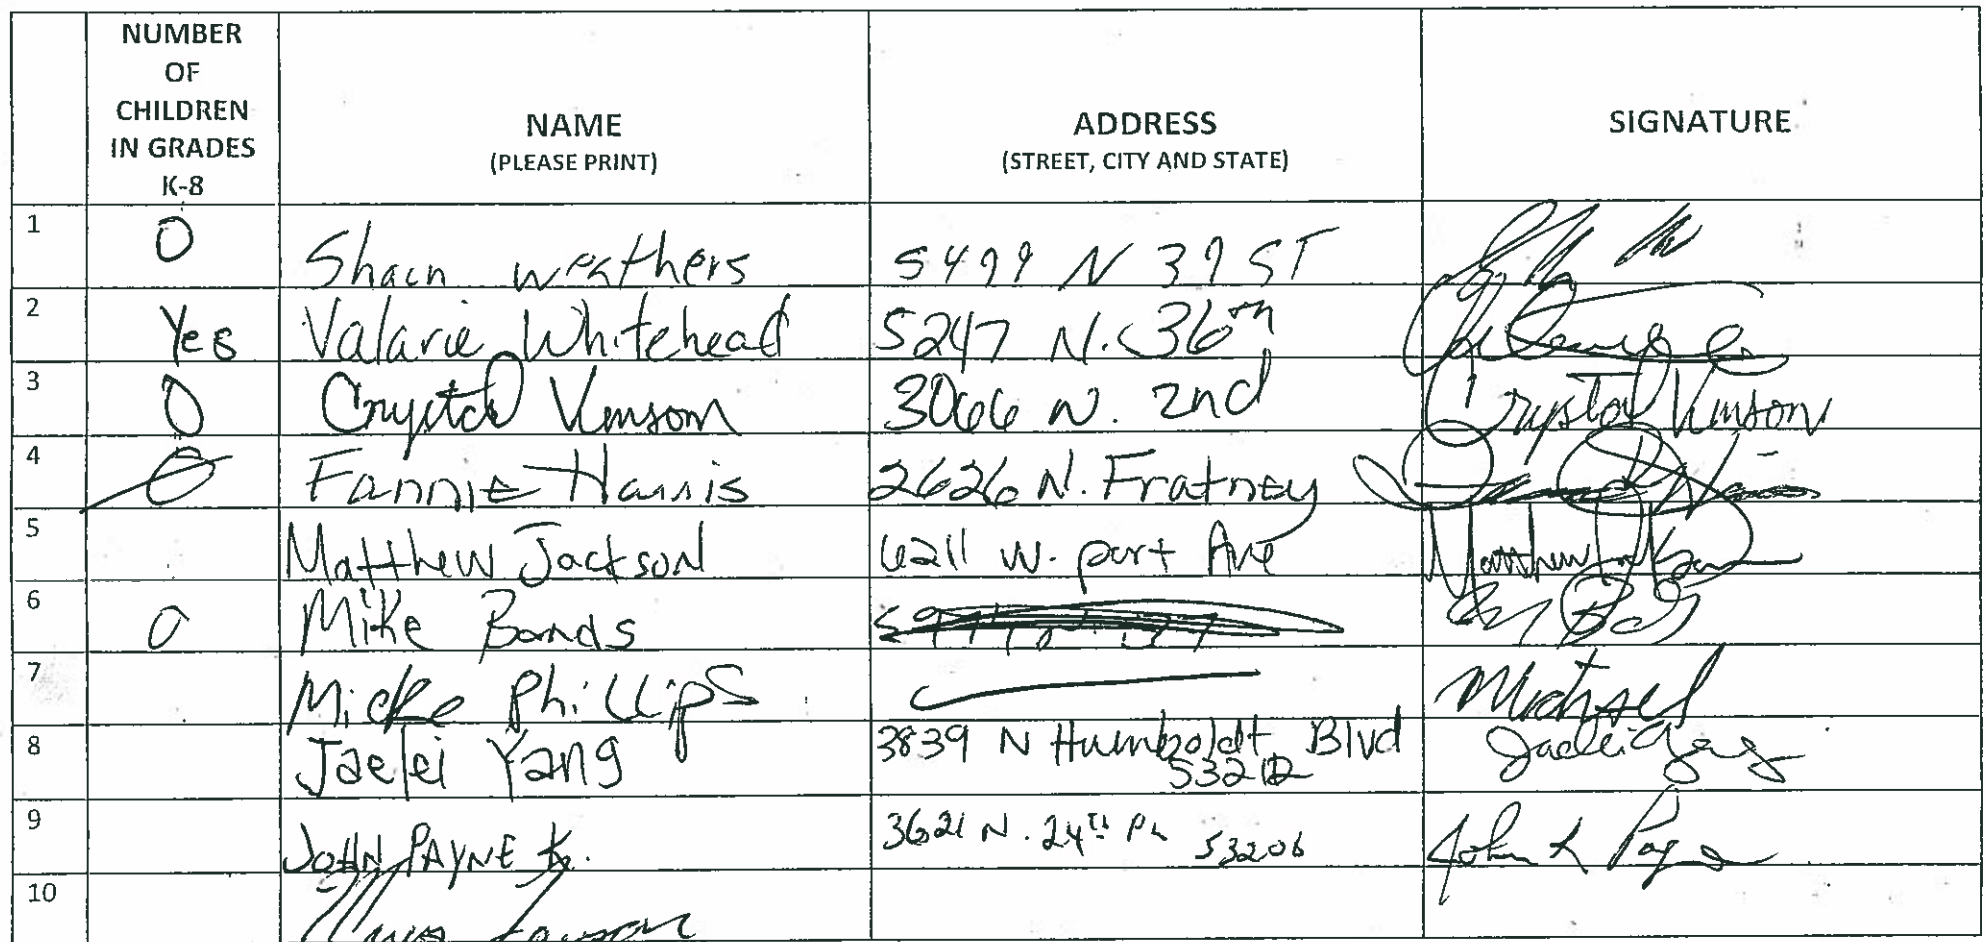 NUMBER
OF
CHILDREN
IN GRADES
K-8
NAME
(PLEASE PRINT)
ADDRESS
(STREET, CITY AND STATE)
SIGNATURE
1 0 Shaun weathers 5499 N 39 ST
2 Yes Valarie Whitehead 5247 N. 36th
3 0 Crystal Vinson 3066 N. 2nd Crystal Vinson
4 0 Fannie Harris 2626 N. Fratney
5 Matthew Jackson 6211 W. port Ave Matthew Jackson
6 0 Mike Bonds
7 Micke Phillips Michael
8 Jaelei Yang 3839 N Humboldt Blvd Jaelei Yang
53212
9 JOHN PAYNE Jr. 3621 N. 24th PL 53206 John L Payne
10